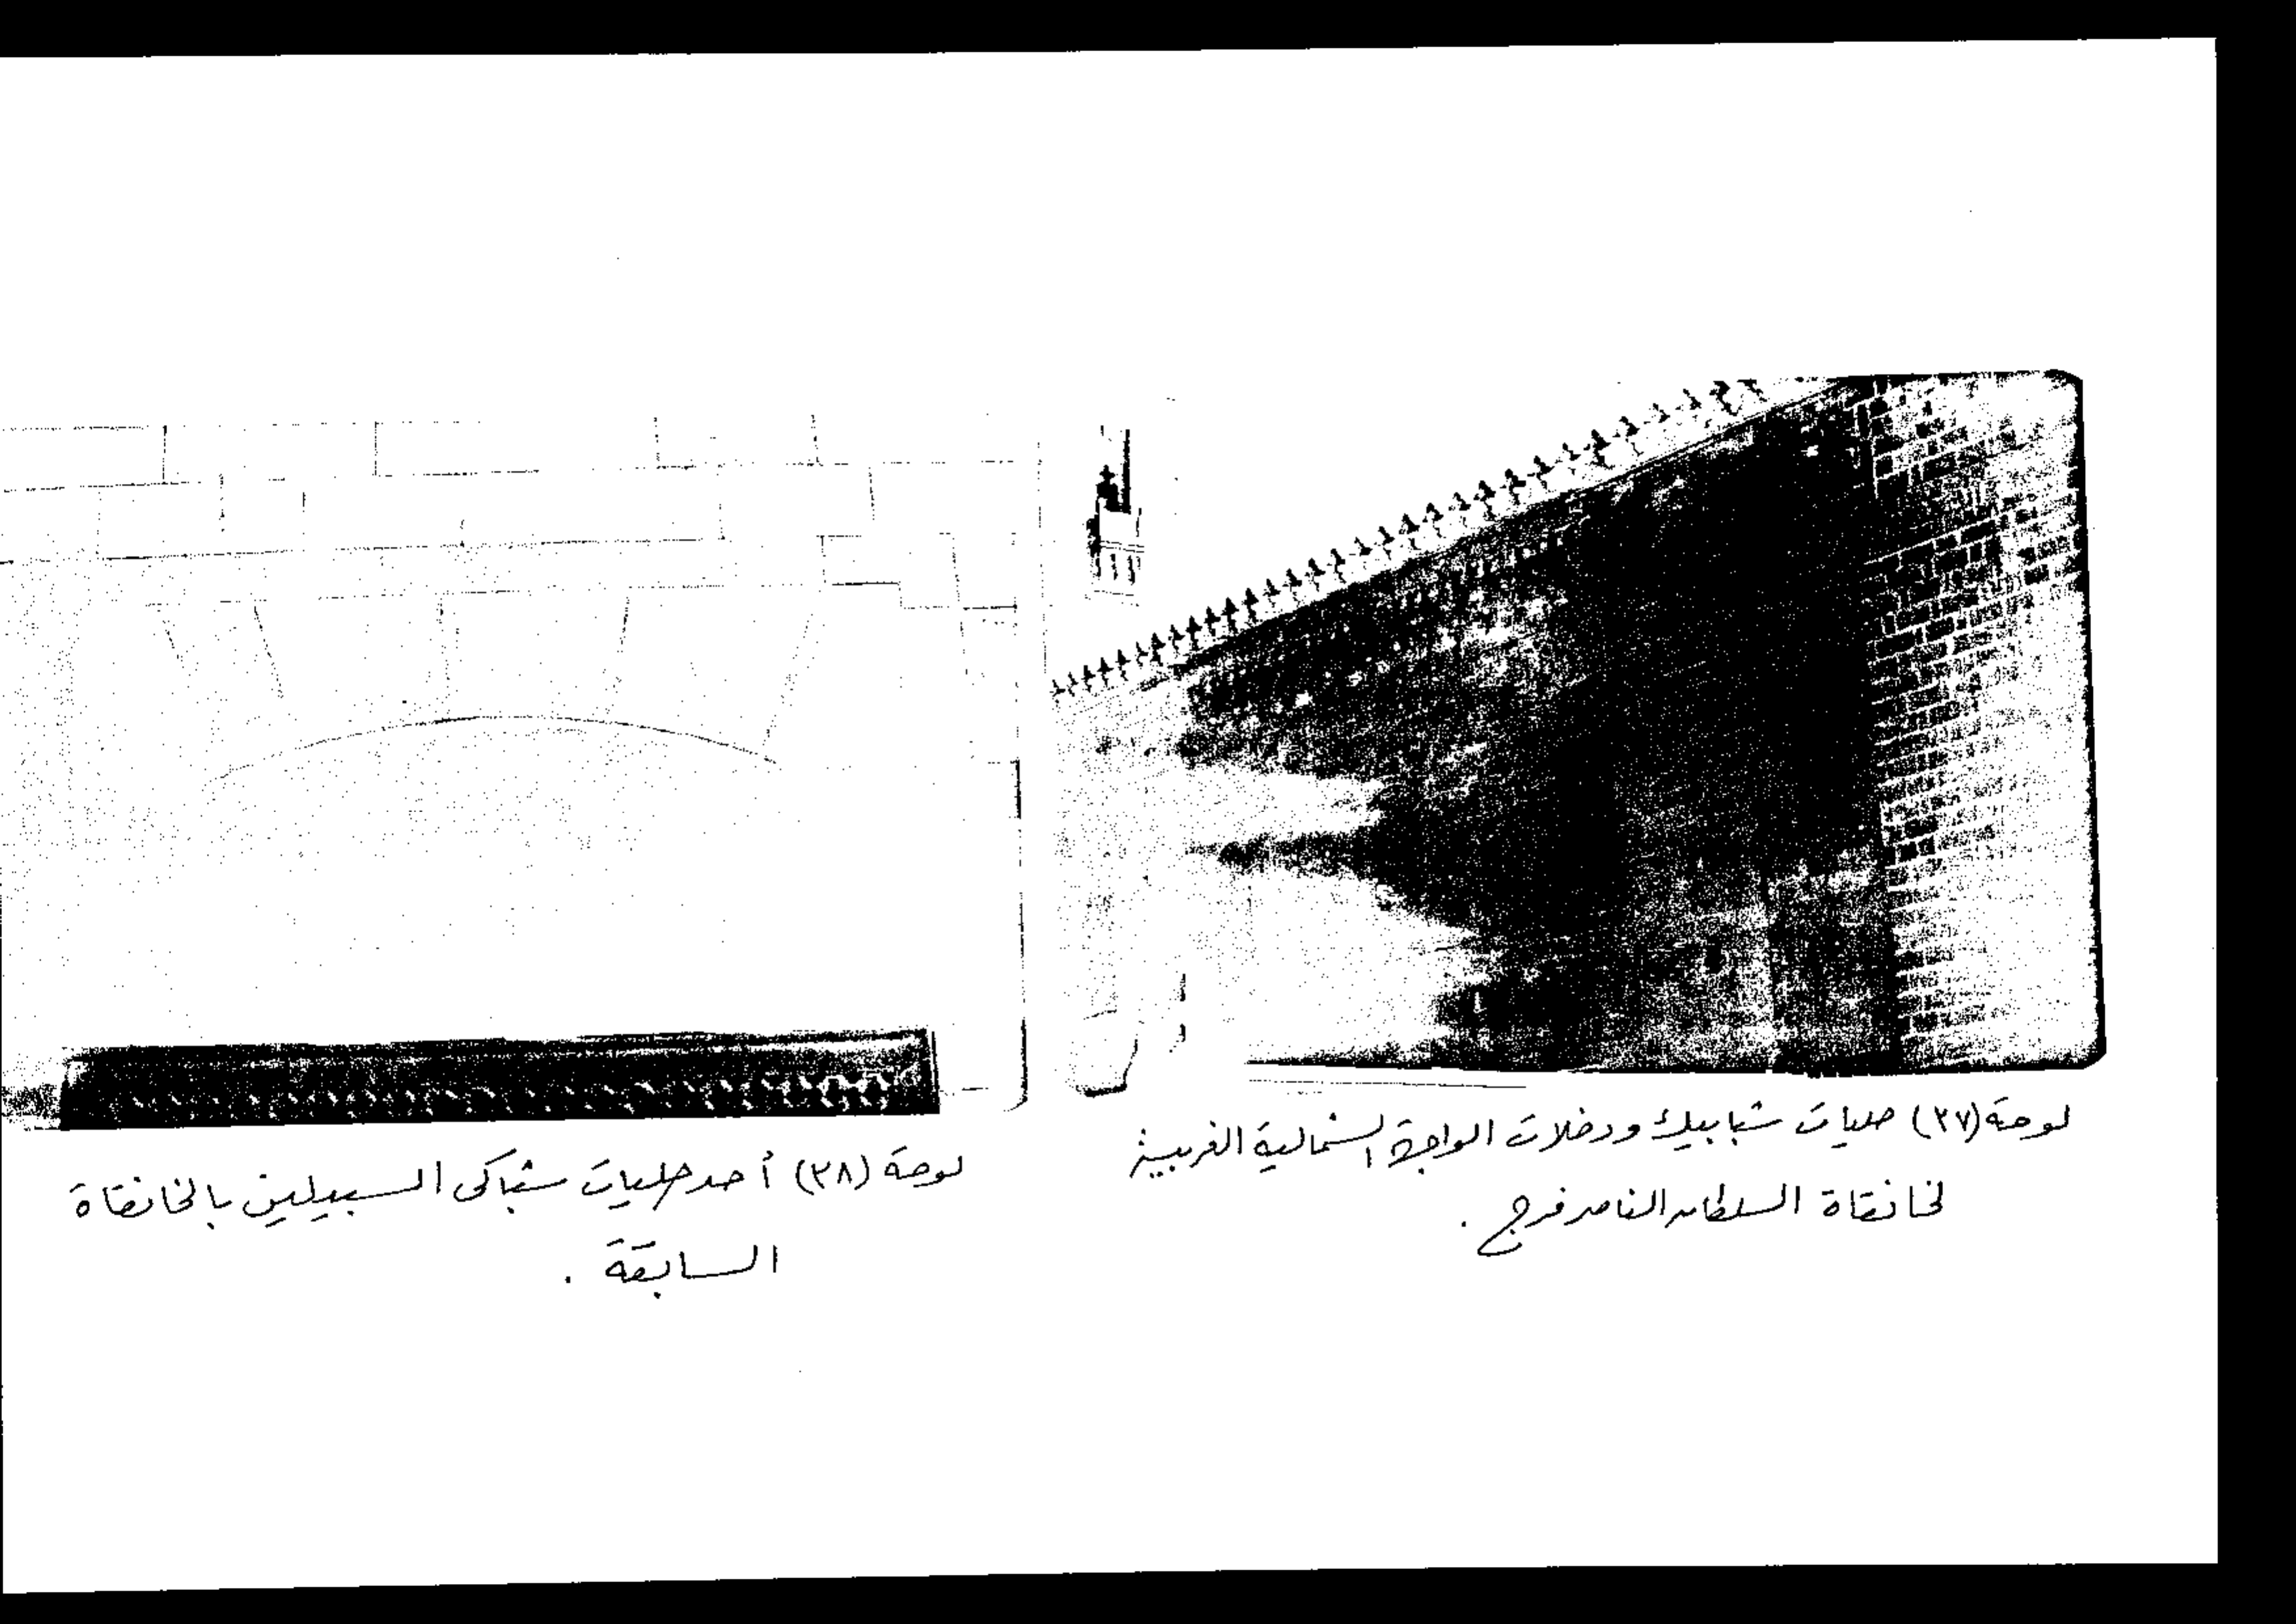 لوحة (٣٧) حليات شبابيك ودخلات الواجهة الشمالية الغربية
لخانقاة السلطان الناصر فرج .
لوحة (٣٨) أحد حليات شباكى السبيلين بالخانقاة
السابقة .